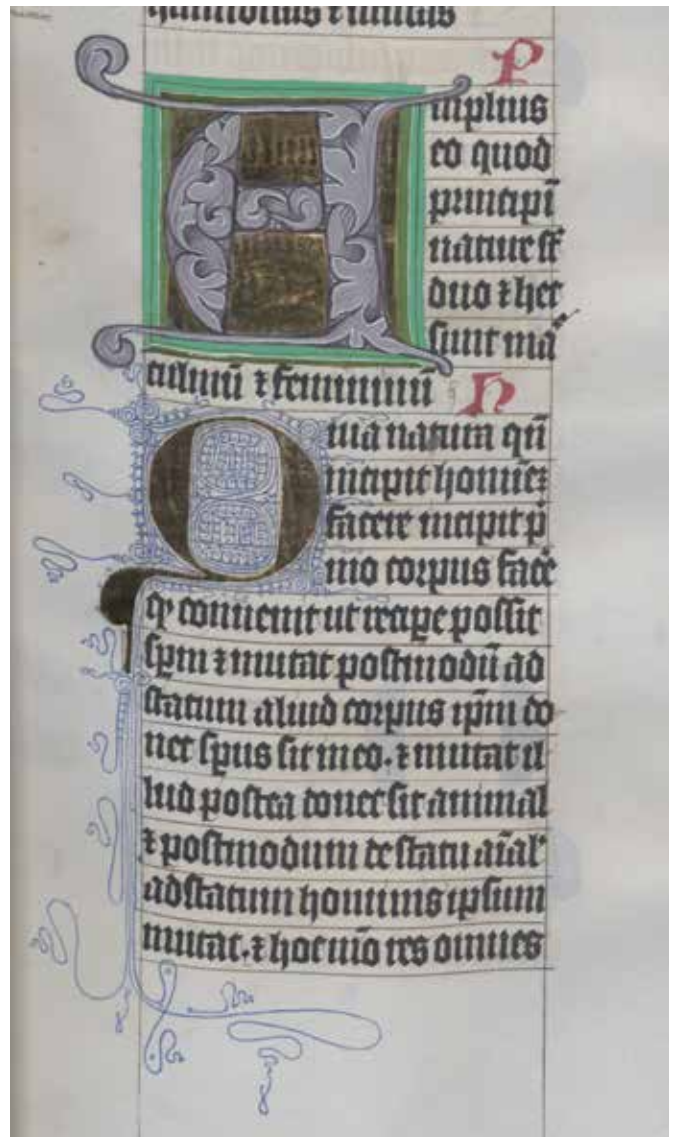 P
Amplius
eo quod
principi̅
nature
duo ⁊ hec
sunt mas
culinū ⁊ femininū
Quia natura qn̄
incipit homineꝫ
facere incipit p̄
mo corpus face̅
conuenit ut recipe possit
spm ⁊ mutat postmodū ad
statum aliud corpus ip̄m do
nec spus sit in eo. ⁊ mutat il
lud postea donec sit animal
⁊ postmodum de statu aīal'
ad statum hominis ipsum
mutat. ⁊ hoc mō res omnes